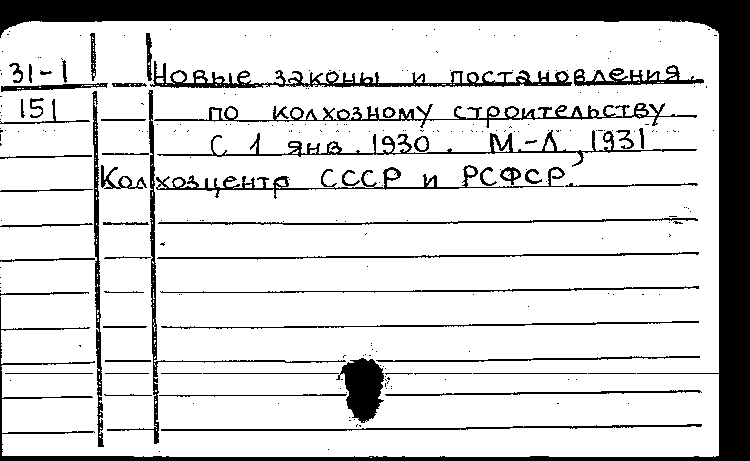 31-1 Новые законы и постановления.
151 по колхозному строительству.
С 1 янв. 1930. М.-Л., 1931
Колхозцентр СССР и РСФСР.